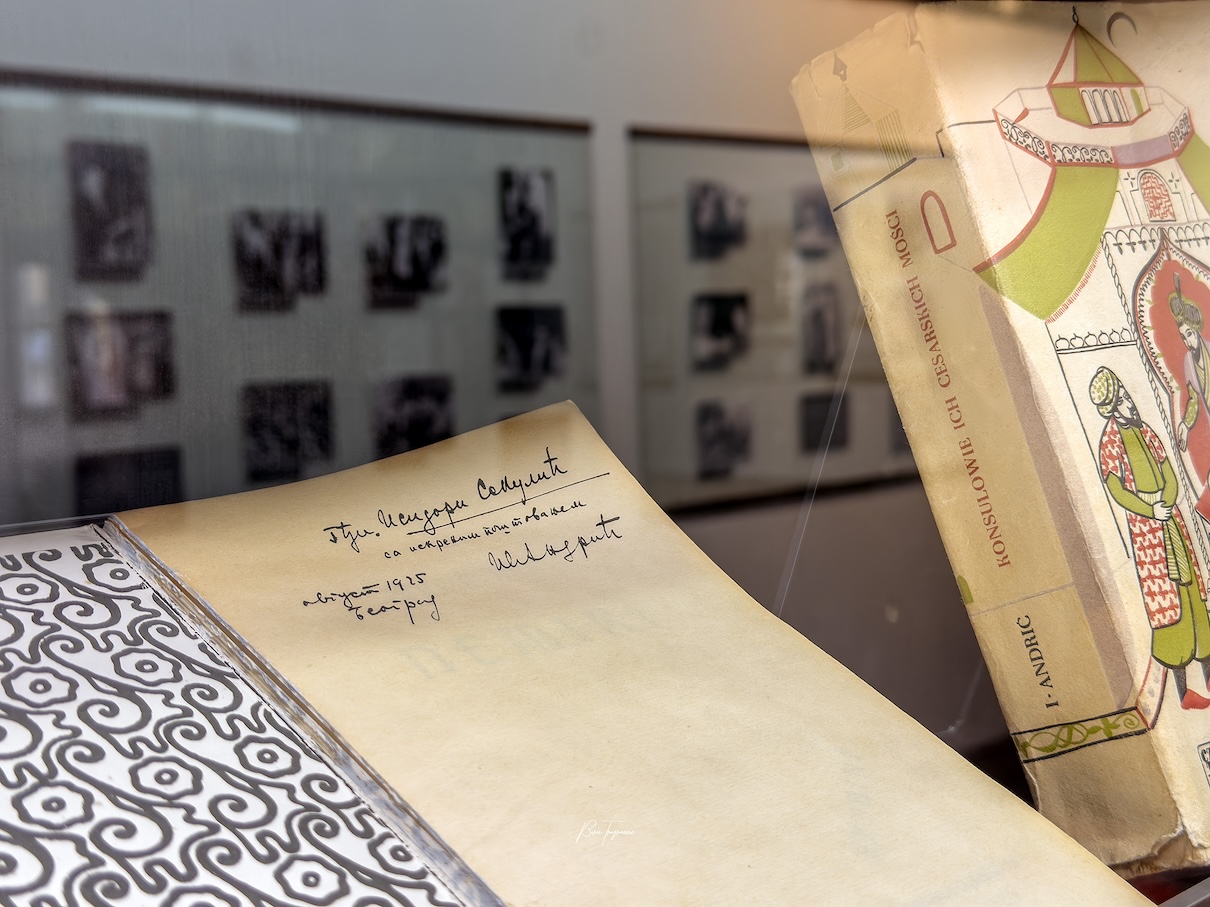 Гђи. Исидори Секулић
са искреним поштовањем
Ив. Андрић
август 1925
Београд
KONSULOWIE ICH CESARSKICH MOŚCI
I · ANDRIĆ